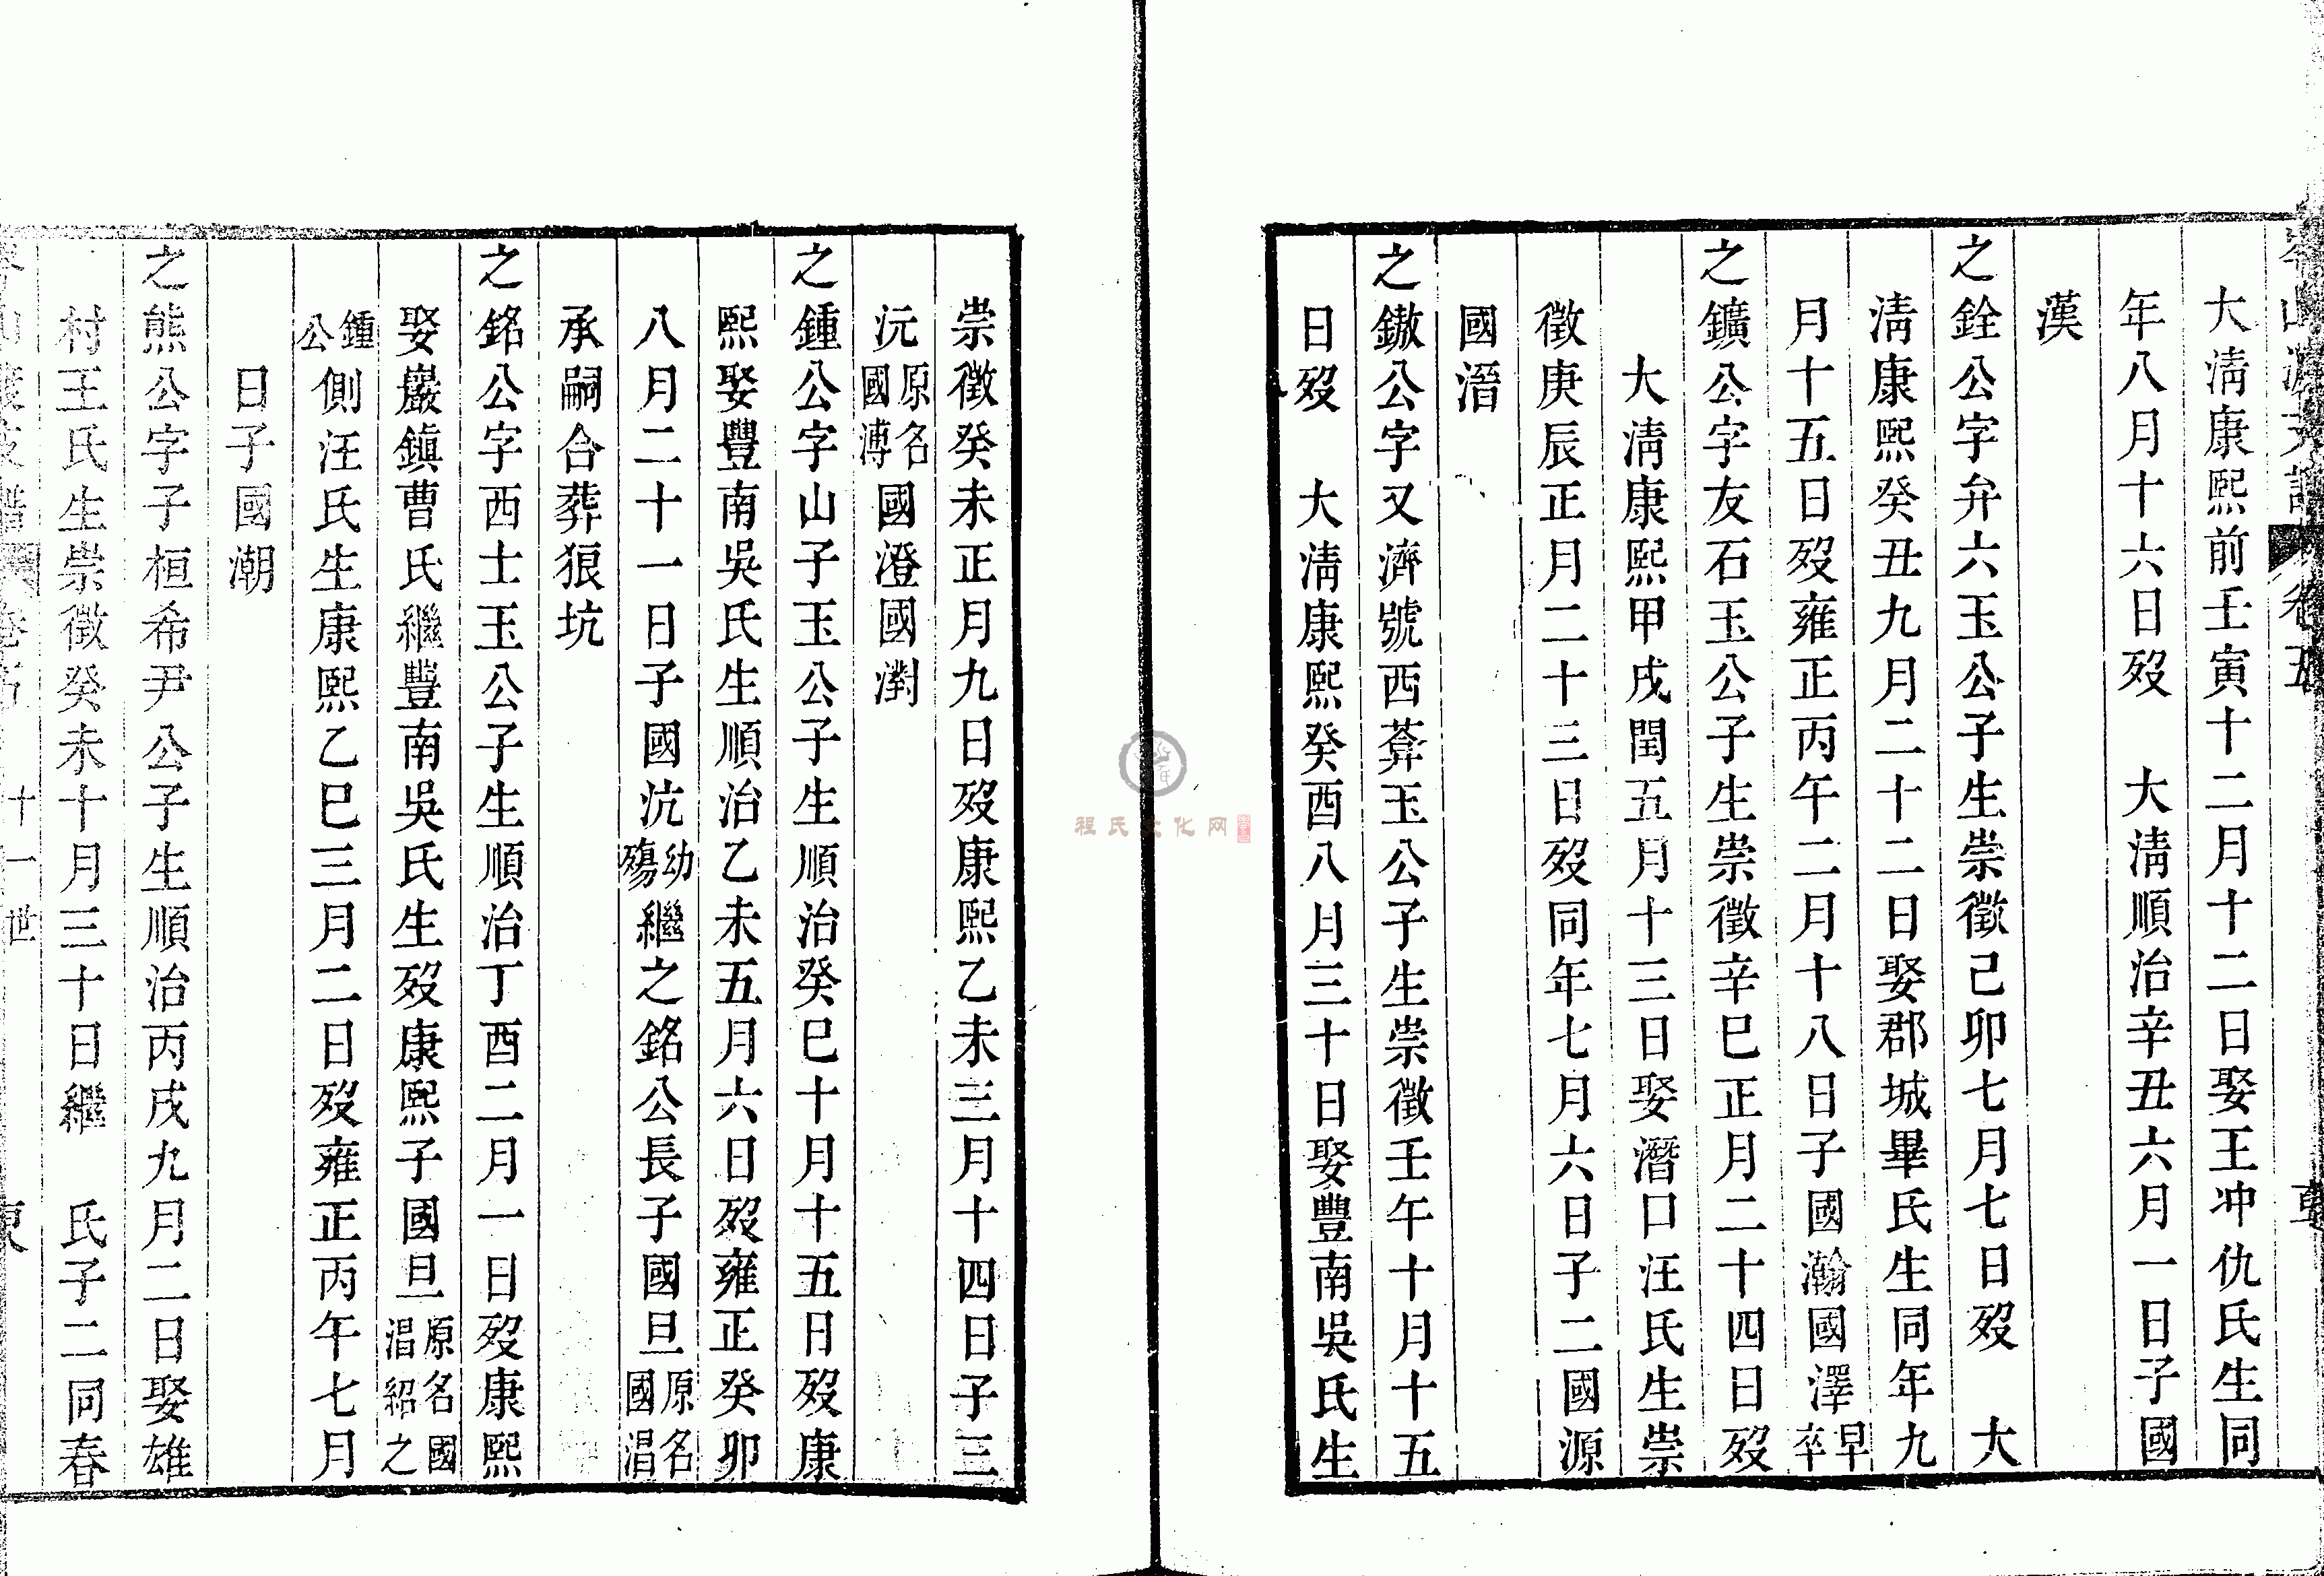 大清康熙前壬寅十二月十二日娶王冲仇氏生同
年八月十六日歿 大清順治辛丑六月一日子國
漢
之銓公字弁六玉公子生崇徵己卯七月七日歿 大
清康熙癸丑九月二十二日娶郡城畢氏生同年九
月十五日歿雍正丙午二月十八日子國瀚國澤早卒
之鑛公字友石玉公子生崇徵辛巳正月二十四日歿
大清康熙甲戌閏五月十三日娶潛口汪氏生崇
徵庚辰正月二十三日歿同年七月六日子二國源
國溍
之鏾公字又濟號西葊玉公子生崇徵壬午十月十五
日歿 大清康熙癸酉八月三十日娶豐南吳氏生
崇徵癸未正月九日歿康熙乙未三月十四日子三
沅原名國溥國澄國瀏
之鍾公字山子玉公子生順治癸巳十月十五日歿康
熙娶豐南吳氏生順治乙未五月六日歿雍正癸卯
八月二十一日子國沆幼殤繼之銘公長子國旦原名國淐
承嗣合葬狼坑
之銘公字西士玉公子生順治丁酉二月一日歿康熙
娶巖鎮曹氏繼豐南吳氏生歿康熙子國旦原名國淐紹之
鍾公側汪氏生康熙乙巳三月二日歿雍正丙午七月
日子國潮
之熊公字子桓希尹公子生順治丙戌九月二日娶雄
村王氏生崇徵癸未十月三十日繼 氏子二同春
卷五
十一世
程氏文化网